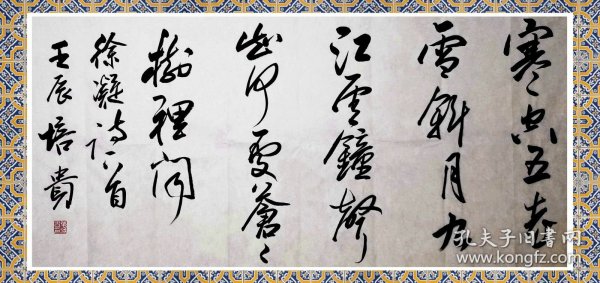 寒空五老
雪斜月九
江雲鐘聲
知何處蒼々
樹裡聞
徐凝詩一首
壬辰培貴
孔夫子旧书网
www.kongfz.com